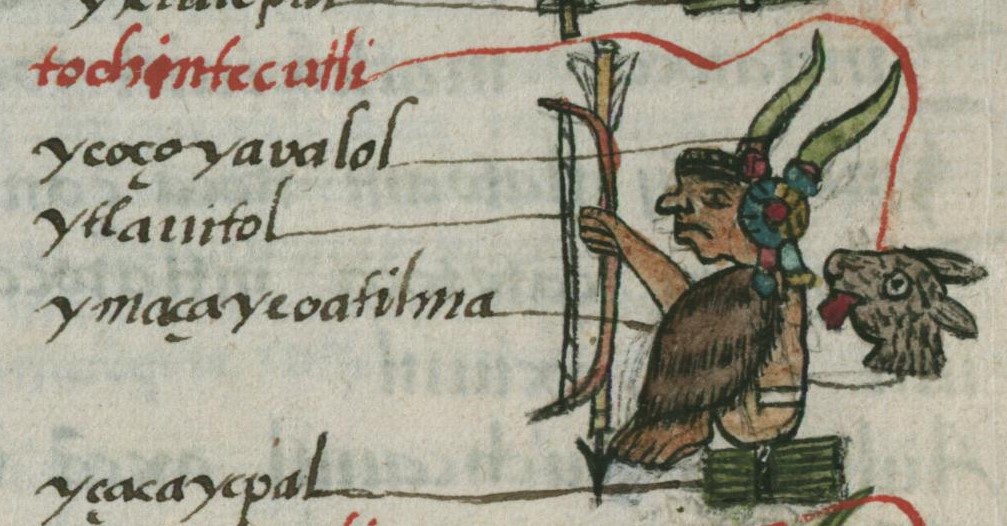 tochintecutli
ycoçoyavalol
ytlavitol
ymaçayeoatilma
yçacaycpal